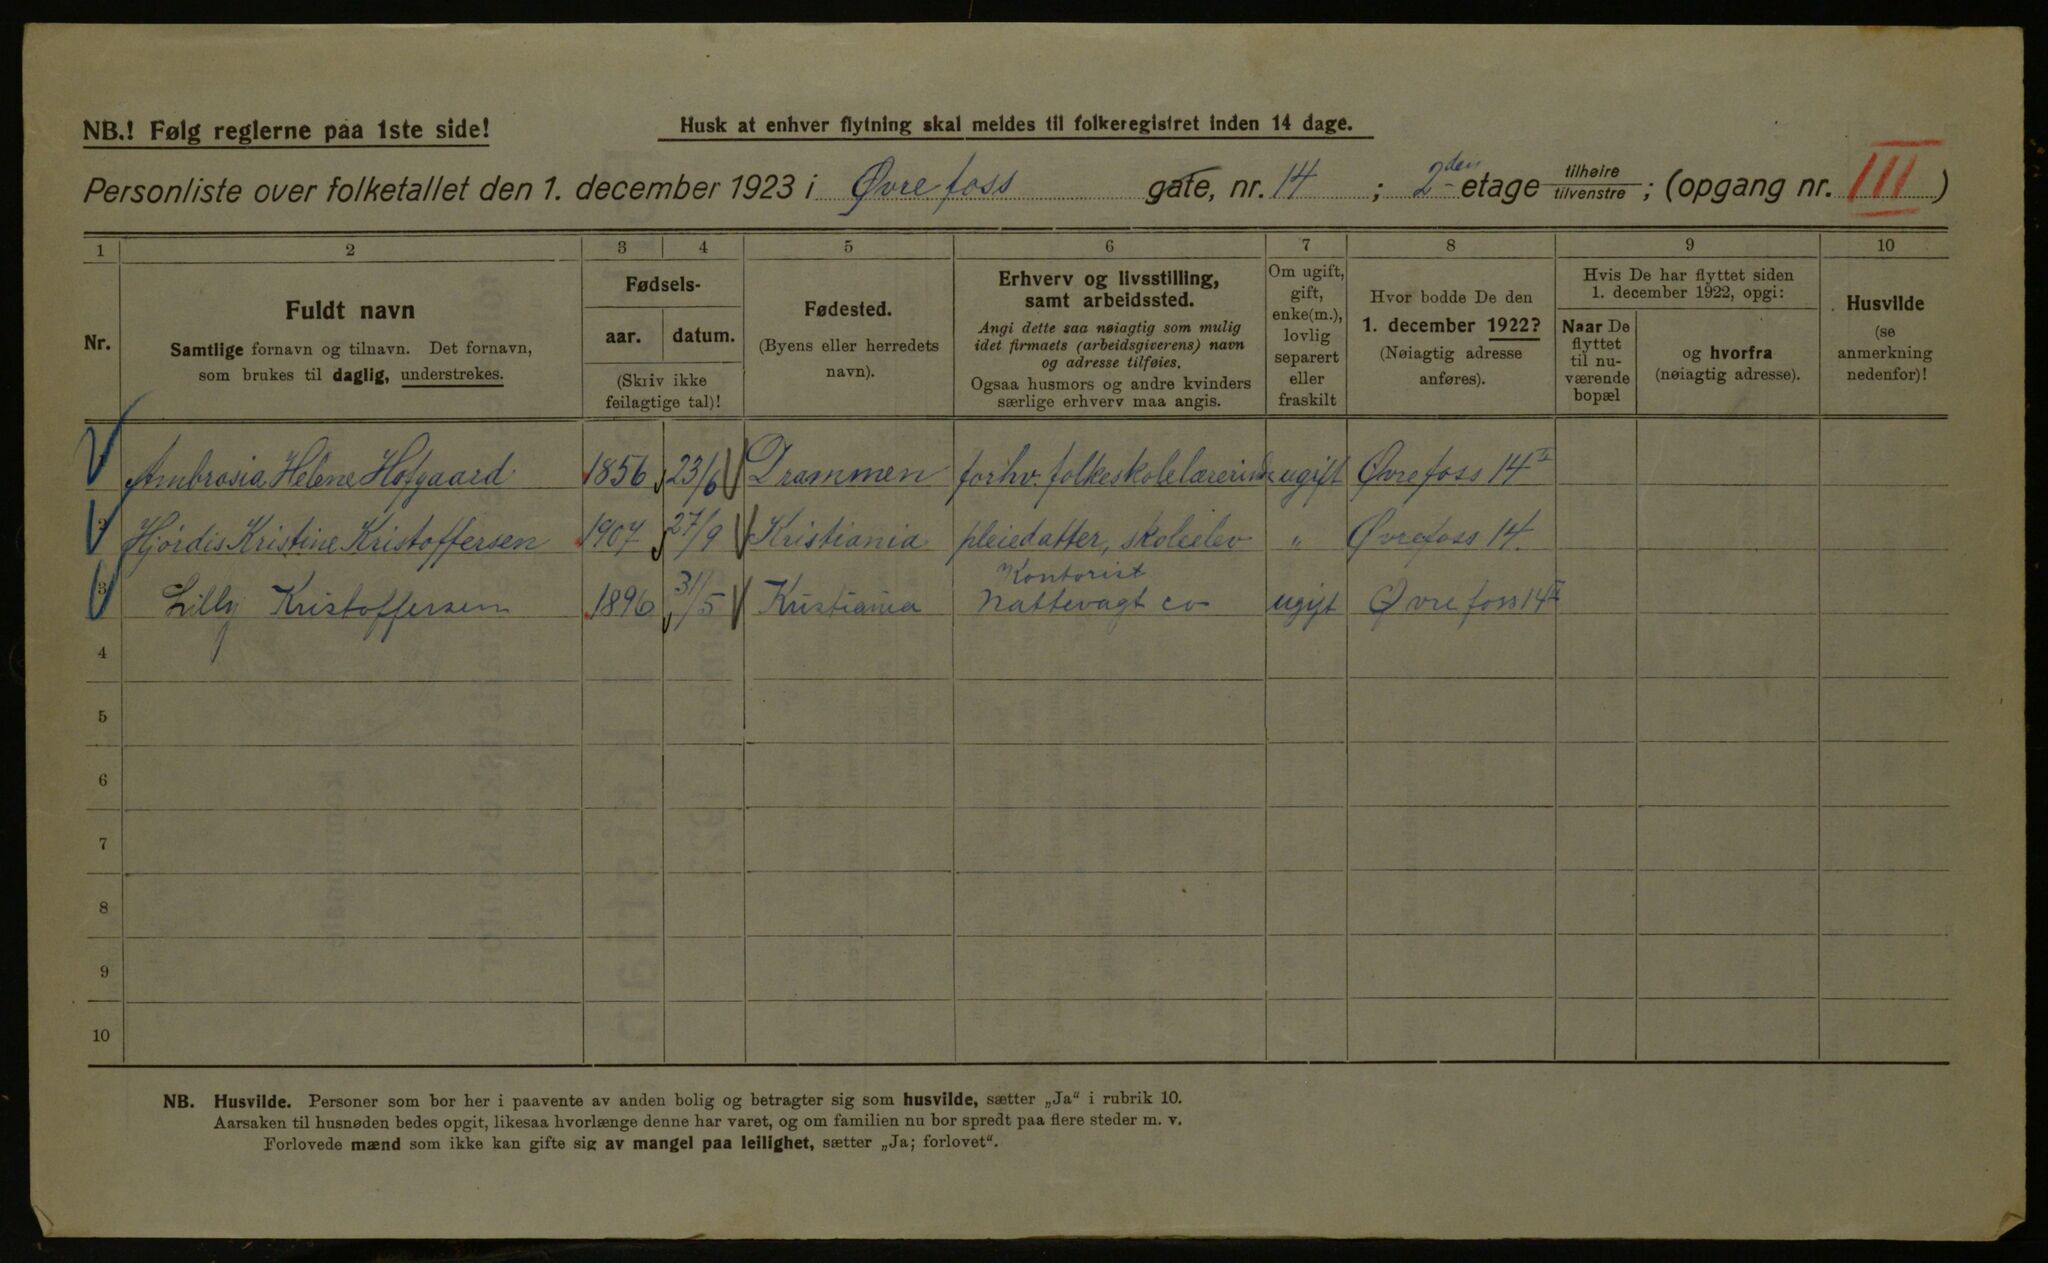 NB.! Følg reglerne paa 1ste side!
Husk at enhver flytning skal meldes til folkeregistret inden 14 dage.
Personliste over folketallet den 1. december 1923 i Øvre foss gate, nr. 14 ; 2den etage tilhøire tilvenstre ; (opgang nr. III )
1 2 3 4 5 6 7 8 9 10
Nr.
Fuldt navn
Samtlige fornavn og tilnavn. Det fornavn,
som brukes til daglig, understrekes.
Fødsels-
aar. datum.
(Skriv ikke
feilagtige tal)!
Fødested.
(Byens eller herredets
navn).
Erhverv og livsstilling,
samt arbeidssted.
Angi dette saa nøiagtig som mulig
idet firmaets (arbeidsgiverens) navn
og adresse tilføies.
Ogsaa husmors og andre kvinders
særlige erhverv maa angis.
Om ugift,
gift,
enke(m.),
lovlig
separert
eller
fraskilt
Hvor bodde De den
1. december 1922?
(Nøiagtig adresse
anføres).
Hvis De har flyttet siden
1. december 1922, opgi:
Naar De
flyttet
til nu-
værende
bopæl
og hvorfra
(nøiagtig adresse).
Husvilde
(se
anmerkning
nedenfor)!
Ambrosia Helene Hofgaard 1856 23/6 Drammen forhv. folkeskolelærerinde ugift Øvrefoss 14 II
2 Hjördis Kristine Kristoffersen 1907 27/9 Kristiania pleiedatter, skoleelev " Øvrefoss 14.
3 Lilly Kristoffersen 1896 31/5 Kristiania Kontorist
Nattevagt co ugift Øvre foss 14 II
4
5
6
7
8
9
10
NB. Husvilde. Personer som bor her i paavente av anden bolig og betragter sig som husvilde, sætter „Ja" i rubrik 10.
Aarsaken til husnøden bedes opgit, likesaa hvorlænge denne har varet, og om familien nu bor spredt paa flere steder m. v.
Forlovede mænd som ikke kan gifte sig av mangel paa leilighet, sætter „Ja; forlovet".